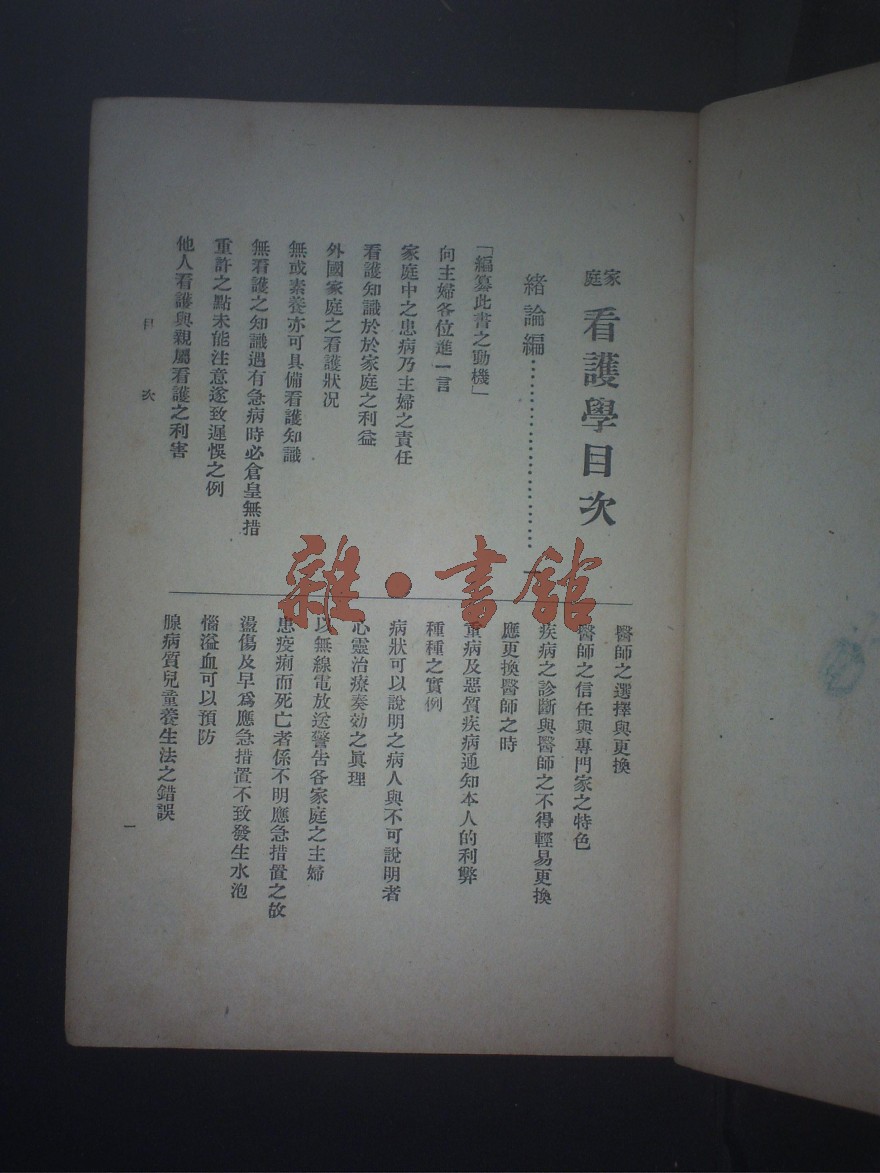 家庭 看護學目次
緒論編……………………一
「編纂此書之動機」
向主婦各位進一言
家庭中之患病乃主婦之責任
看護知識於於家庭之利益
外國家庭之看護狀况
無或素養亦可具備看護知識
無看護之知識遇有急病時必倉皇無措
重許之點未能注意遂致遲悞之例
他人看護與親屬看護之利害
醫師之選擇與更換
醫師之信任與專門家之特色
疾病之診斷與醫師之不得輕易更換
應更換醫師之時
重病及惡質疾病通知本人的利弊
種種之實例
病狀可以說明之病人與不可說明者
心靈治療奏効之眞理
以無線電放送警告各家庭之主婦
患疫痢而死亡者係不明應急措置之故
盪傷及早爲應急措置不致發生水泡
惱溢血可以預防
腺病質兒童養生法之錯誤
目次
一
雜·書館